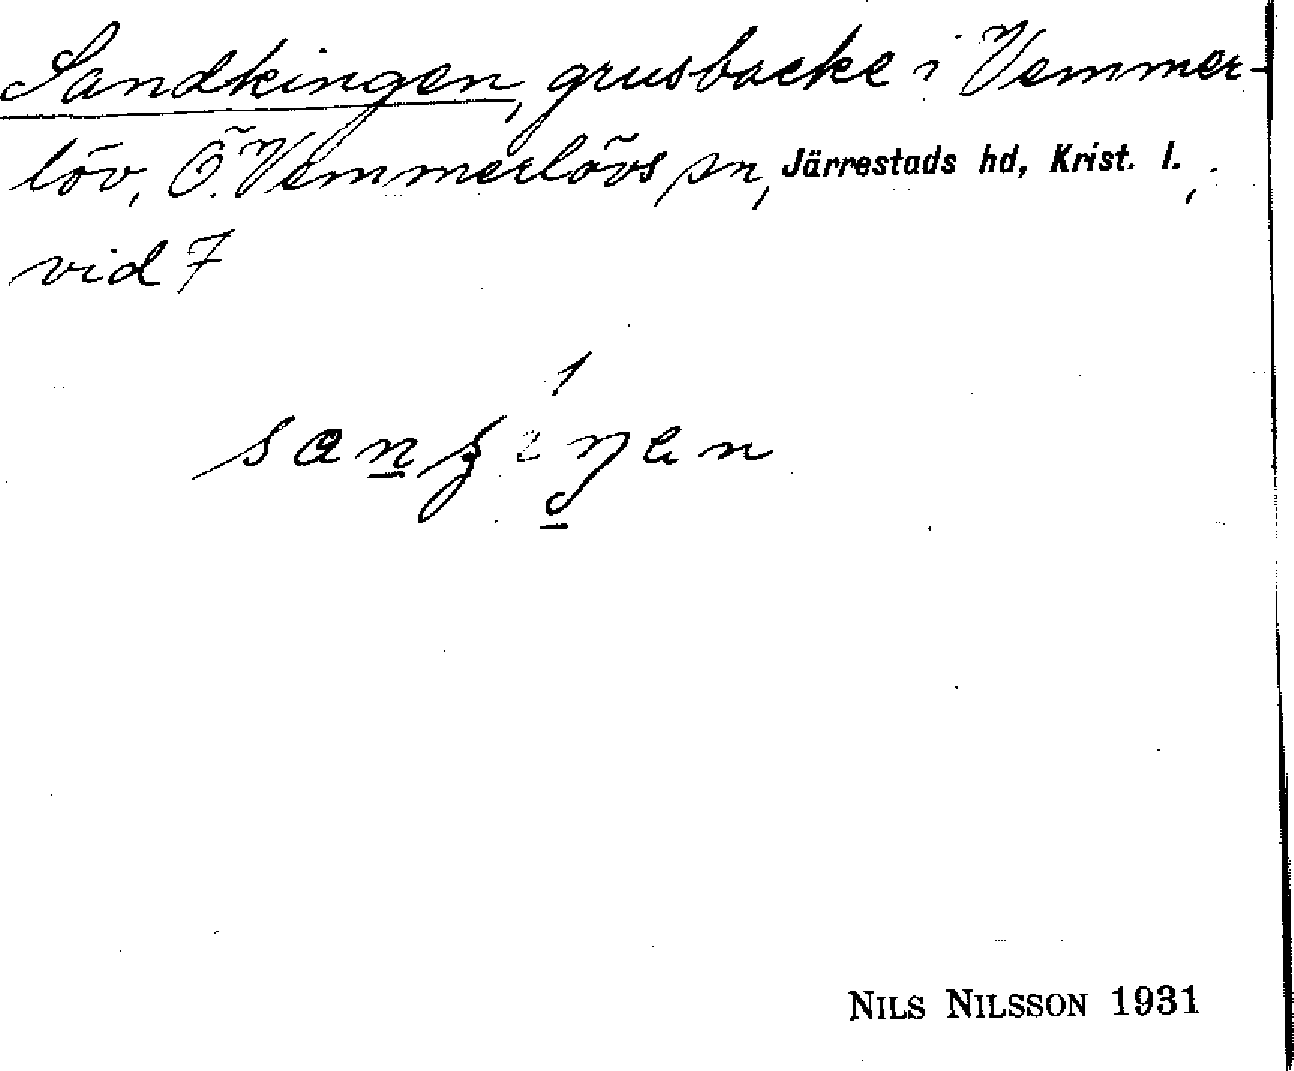 Sandkingen, grusbacke i Vemmer-
löv, Ö. Vemmerlövs sn, Järrestads hd, Krist. l.,
vid 7
NILS NILSSON 1931